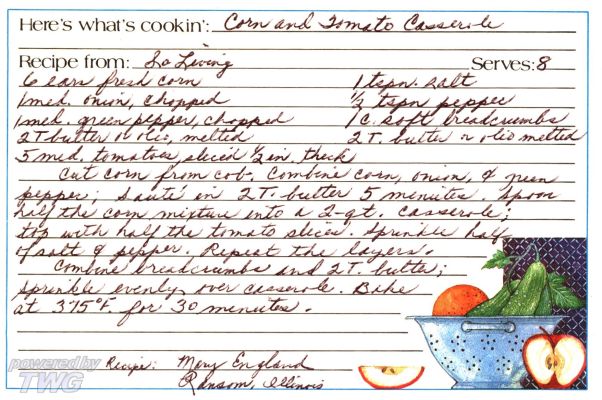 Here's what's cookin': Corn and Tomato Casserole
Recipe from: So Living Serves: 8
6 ears fresh corn 1 tspn. salt
1 med. onion, chopped ½ tspn pepper
1 med. green pepper, chopped 1 c. soft breadcrumbs
2 T butter or olio, melted 2 T. butter or olio melted
5 med. tomatoes, sliced ½ in. thick
Cut corn from cob. Combine corn, onion, & green
pepper; sauté in 2 T. butter 5 minutes. Spoon
half the corn mixture into a 2-qt. casserole;
top with half the tomato slices. Sprinkle half
of salt & pepper. Repeat the layers.
Combine breadcrumbs and 2 T. butter;
sprinkle evenly over casserole. Bake
at 375°F. for 30 minutes.
Recipe: Mary England
Ransom, Illinois
powered by
TWG